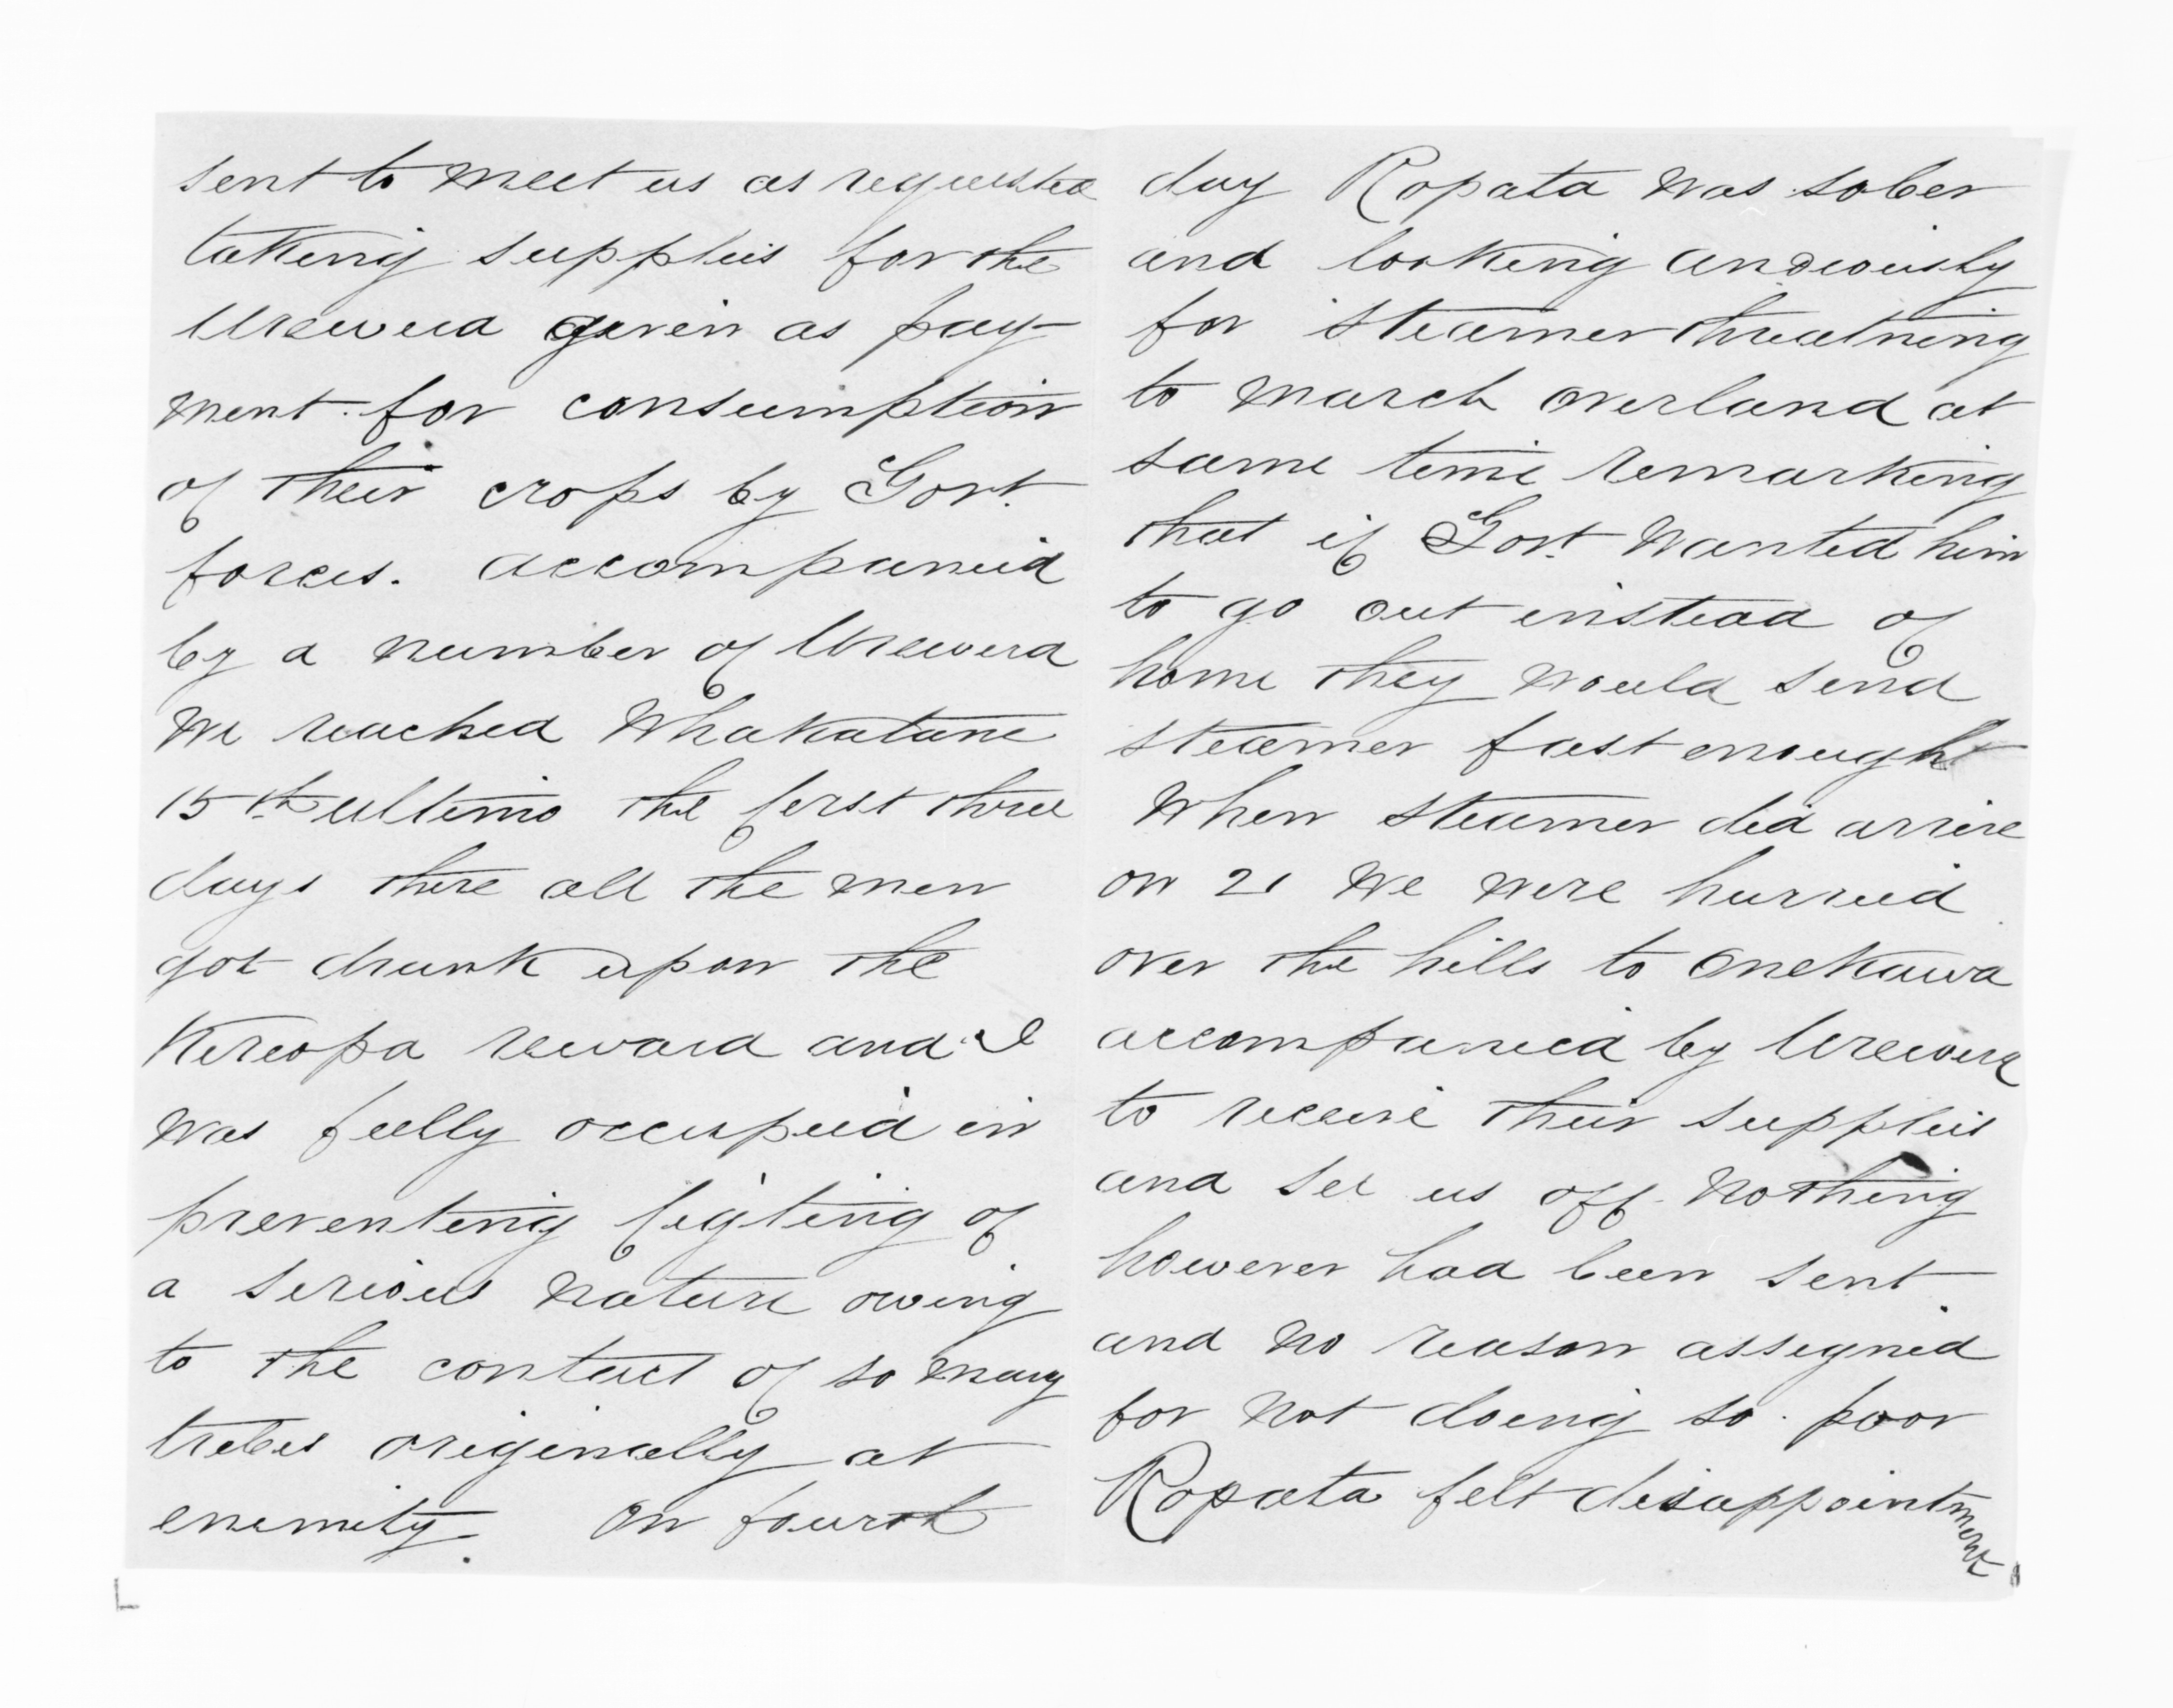 sent to meet us as requested
taking supplies for the
Urewera given as pay-
ment for consumption
of their crops by Govt.
forces. accompanied
by a number of Urewera
we reached Whakatane
15th ultimo the first three
days there all the men
got drunk upon the
Kereopa reward and I
was fully occupied in
preventing figting of
a serious nature owing
to the contact of so many
tribes originally at
enemity. On fourth
day Ropata was sober
and looking anxiously
for steamer threatning
to march overland at
same time remarking
that if Govt. wanted him
to go out instead of
home they would send
steamer fast enought
When steamer did arrive
on 21 we were hurried
over the hills to Onekawa
accompanied by Urewera
to receive their supplies
and see us off. Nothing
however had been sent
and no reason assigned
for not doing so. poor
Ropata felt disappointment